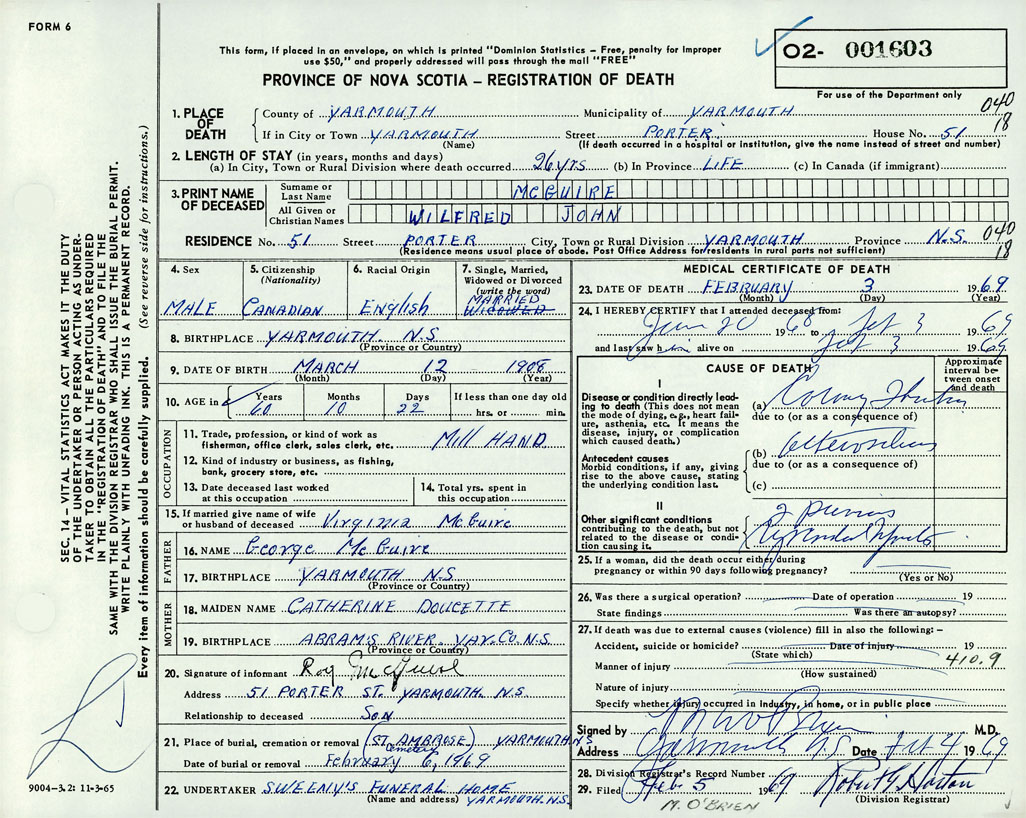 FORM 6
This form, if placed in an envelope, on which is printed "Dominion Statistics – Free, penalty for improper
use $50," and properly addressed will pass through the mail "FREE"
PROVINCE OF NOVA SCOTIA – REGISTRATION OF DEATH
O2- 001603
For use of the Department only
040
18
1. PLACE OF DEATH
County of YARMOUTH Municipality of YARMOUTH
If in City or Town YARMOUTH Street PORTER House No. 51
(Name) (If death occurred in a hospital or institution, give the name instead of street and number)
2. LENGTH OF STAY (in years, months and days)
(a) In City, Town or Rural Division where death occurred 26 YRS (b) In Province LIFE (c) In Canada (if immigrant)
3. PRINT NAME OF DECEASED
Surname or Last Name MCGUIRE
All Given or Christian Names WILFRED JOHN
RESIDENCE No. 51 Street PORTER City, Town or Rural Division YARMOUTH Province N.S. 040
18
(Residence means usual place of abode. Post Office Address for residents in rural parts not sufficient)
4. Sex
MALE
5. Citizenship
(Nationality)
CANADIAN
6. Racial Origin
English
7. Single, Married,
Widowed or Divorced
(write the word)
MARRIED
WIDOWED
8. BIRTHPLACE YARMOUTH N.S
(Province or Country)
9. DATE OF BIRTH MARCH 12 1908
(Month) (Day) (Year)
10. AGE in Years Months Days If less than one day old
60 10 22 hrs. or min.
OCCUPATION
11. Trade, profession, or kind of work as
fisherman, office clerk, sales clerk, etc. Mill HAND
12. Kind of industry or business, as fishing,
bank, grocery store, etc.
13. Date deceased last worked
at this occupation
14. Total yrs. spent in
this occupation
15. If married give name of wife
or husband of deceased Virginia McGuire
FATHER
16. NAME George McGuire
17. BIRTHPLACE YARMOUTH N.S
(Province or Country)
MOTHER
18. MAIDEN NAME CATHERINE DOUCETTE
19. BIRTHPLACE ABRAM'S RIVER. YAR.CO.N.S.
(Province or Country)
20. Signature of informant Roy McGuire
Address 51 PORTER ST. YARMOUTH. N.S.
Relationship to deceased SON
21. Place of burial, cremation or removal (ST. AMBROSE) YARMOUTH N.S
Cemetery
Date of burial or removal February 6, 1969
22. UNDERTAKER SWEENY'S FUNERAL HOME
(Name and address) YARMOUTH.N.S.
MEDICAL CERTIFICATE OF DEATH
23. DATE OF DEATH FEBRUARY 3 1969
(Month) (Day) (Year)
24. I HEREBY CERTIFY that I attended deceased from:
June 20 1968 to Feb 3 1969
and last saw him alive on Feb 3 1969
CAUSE OF DEATH
Approximate
interval be-
tween onset
and death
I
Disease or condition directly lead-
ing to death (This does not mean
the mode of dying, e.g., heart fail-
ure, asthenia, etc. It means the
disease, injury, or complication
which caused death.)
(a)
due to (or as a consequence of)
Antecedent causes
Morbid conditions, if any, giving
rise to the above cause, stating
the underlying condition last.
(b)
due to (or as a consequence of)
(c)
II
Other significant conditions
contributing to the death, but not
related to the disease or condi-
tion causing it.
2 previous
25. If a woman, did the death occur either during
pregnancy or within 90 days following pregnancy?
(Yes or No)
26. Was there a surgical operation? Date of operation 19
State findings Was there an autopsy?
27. If death was due to external causes (violence) fill in also the following: –
Accident, suicide or homicide? Date of injury 19
(State which) 410.9
Manner of injury
(How sustained)
Nature of injury
Specify whether injury occurred in industry, in home, or in public place
Signed by M O'Brien M.D.
Address Yarmouth N.S. Date Feb 4 1969
28. Division Registrar's Record Number
29. Filed Feb 5 1969 Robert G Horton
(Division Registrar)
M. O'BRIEN
SEC. 14 – VITAL STATISTICS ACT MAKES IT THE DUTY
OF THE UNDERTAKER OR PERSON ACTING AS UNDER-
TAKER TO OBTAIN ALL THE PARTICULARS REQUIRED
IN THE "REGISTRATION OF DEATH" AND TO FILE THE
SAME WITH THE DIVISION REGISTRAR WHO SHALL ISSUE THE BURIAL PERMIT.
WRITE PLAINLY WITH UNFADING INK. THIS IS A PERMANENT RECORD.
Every item of information should be carefully supplied. (See reverse side for instructions.)
9004-3.2: 11-3-65